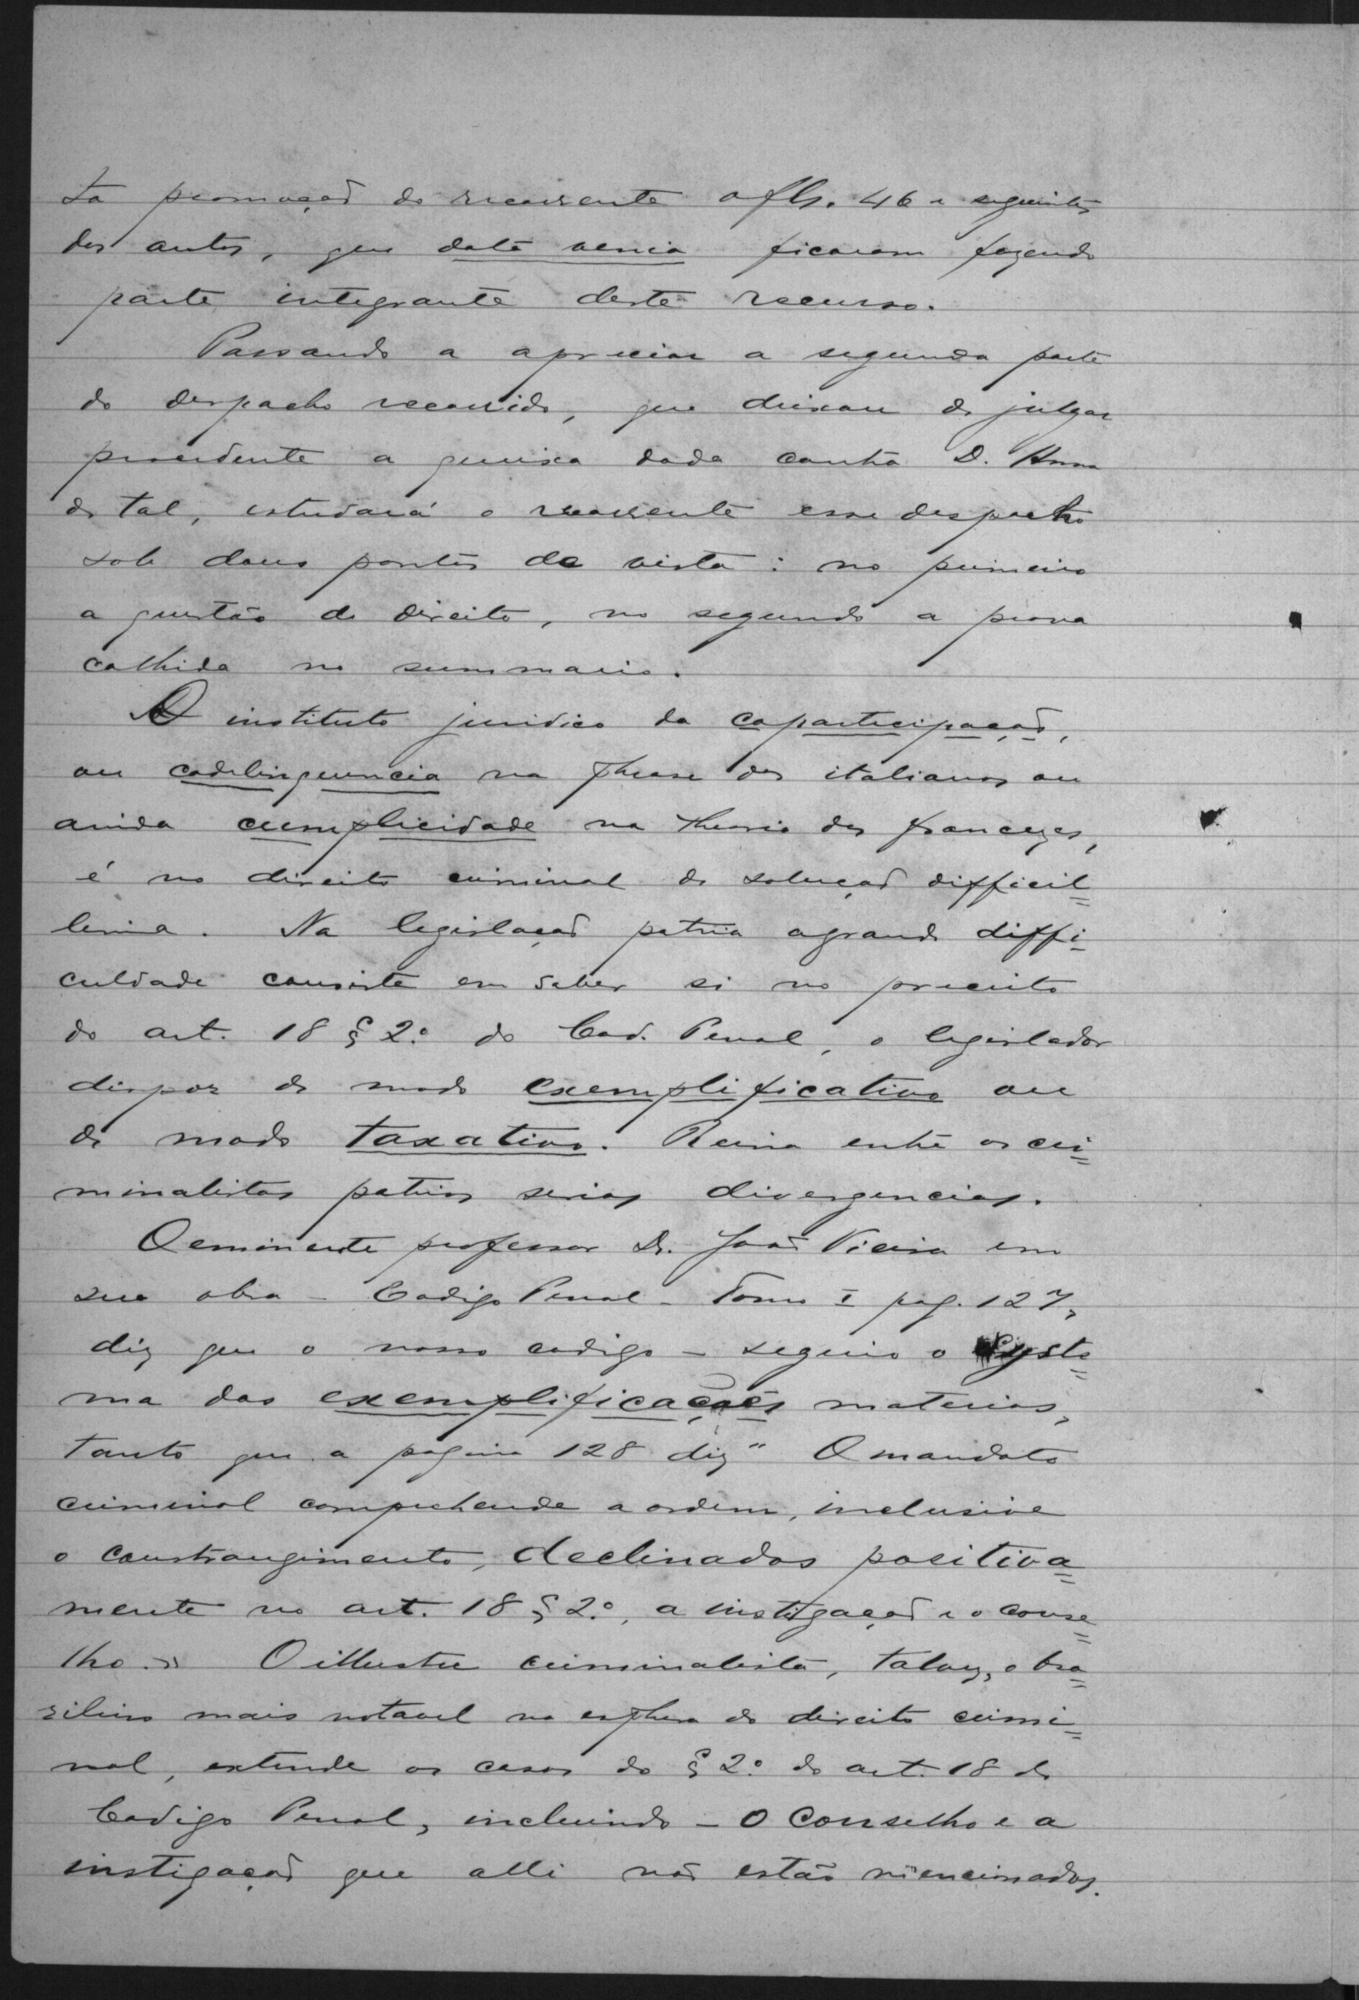 ta promoção do recorrente a fls. 46 e seguintes
dos autos, que data venia ficaram fazendo
parte integrante deste recurso.
Passando a apreciar a segunda parte
do despacho recorrido, que deixou de julgar
procedente a queixa dada contra D. Anna
de tal, estudará o recorrente esse despacho
sob dous pontos de vista: no primeiro
a questão de direito, no segundo a prova
colhida no summario.
O instituto juridico da coparticipação,
ou codelinquencia na phrase dos italianos ou
ainda cumplicidade na theoria dos francezes,
é no direito criminal de solução difficil=
lima. Na legislação patria a grande diffi=
culdade consiste em saber si no preceito
do art. 18 § 2º do Cod. Penal, o legislador
dispoz de modo exemplificativo ou
de modo taxativo. Reina entre os cri=
minalistas patrios serias divergencias.
O eminente professor Dr. João Vieira em
sua obra - Codigo Penal - Tomo I pag. 127,
diz que o nosso codigo - seguio o syste=
ma das exemplificações materias,
tanto que a pagina 128 diz "O mandato
criminal comprehende a ordem, inclusive
o constrangimento, declinados positiva=
mente no art. 18 § 2º, a instigação e o conse=
lho." O illustre criminalista, talvez, o bra=
zileiro mais notavel na esphera do direito crimi=
nal, extende os casos do § 2º do art. 18 do
Codigo Penal, incluindo - o conselho e a
instigação que alli não estão mencionados.